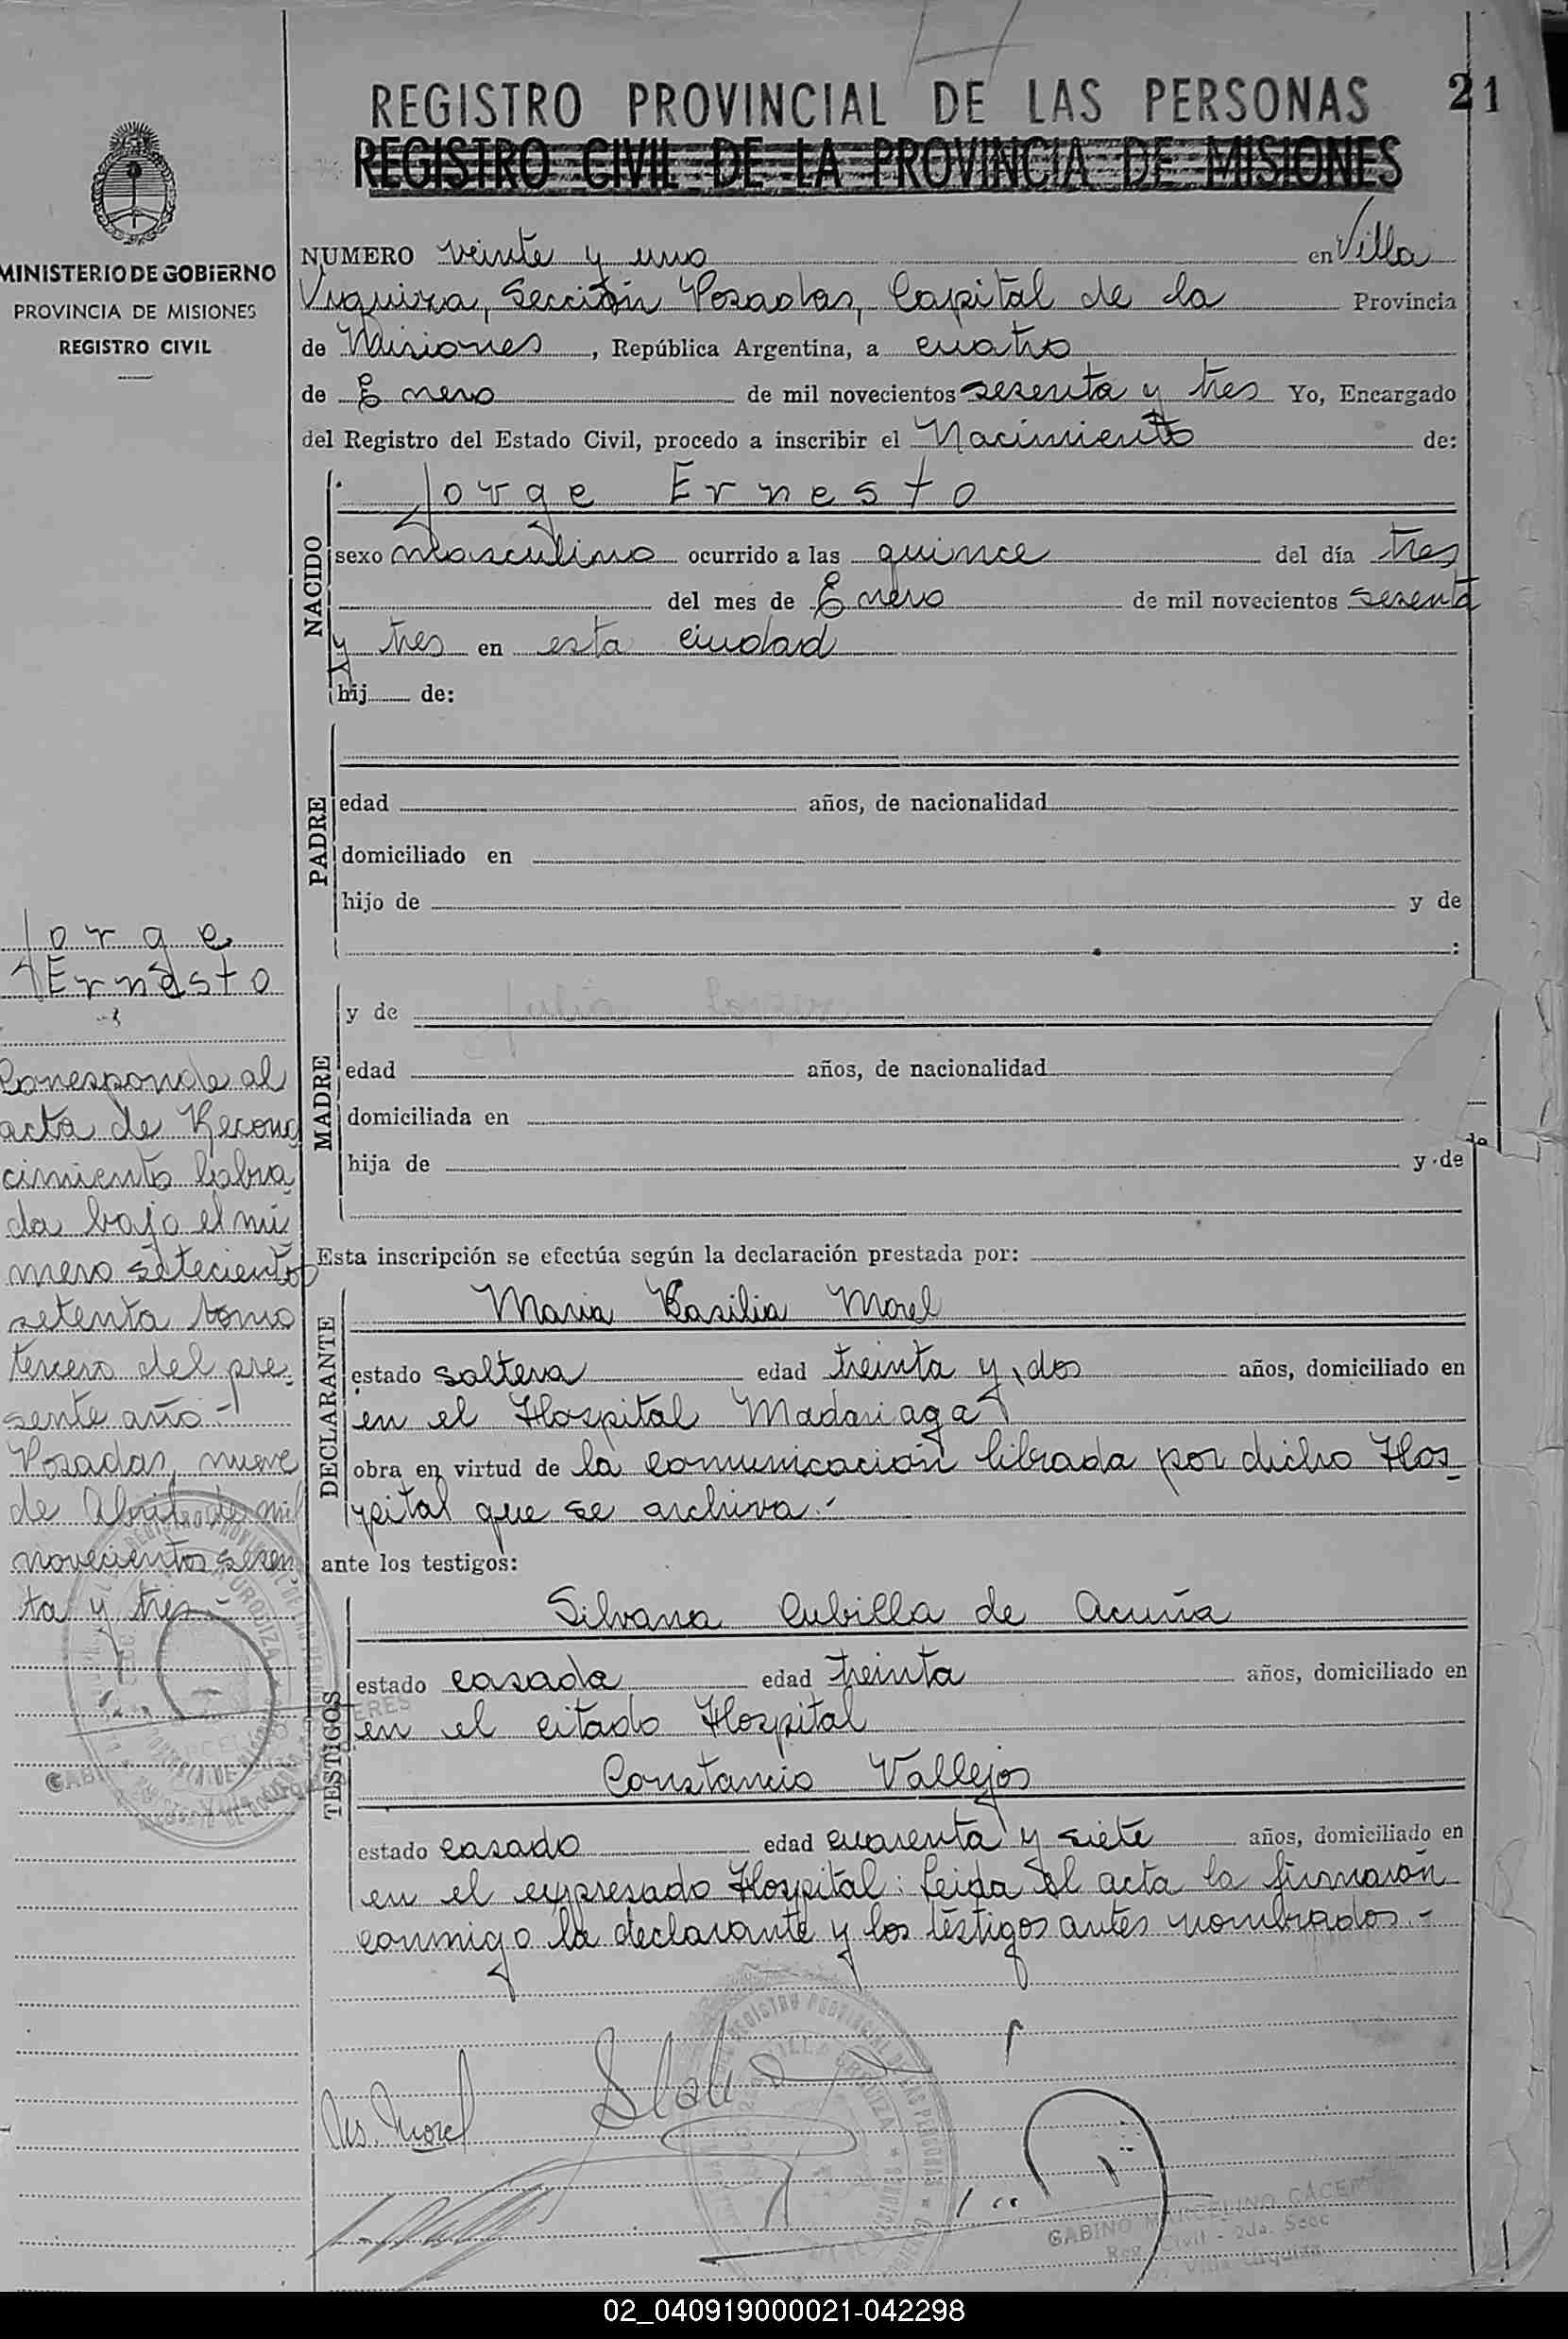 REGISTRO PROVINCIAL DE LAS PERSONAS 21
REGISTRO CIVIL DE LA PROVINCIA DE MISIONES
MINISTERIO DE GOBIERNO
PROVINCIA DE MISIONES
REGISTRO CIVIL
NUMERO veinte y uno en Villa
Urquiza, Sección Posadas, Capital de la Provincia
de Misiones, República Argentina, a cuatro
de Enero de mil novecientos sesenta y tres Yo, Encargado
del Registro del Estado Civil, procedo a inscribir el Nacimiento de:
NACIDO
Jorge Ernesto
sexo masculino ocurrido a las quince del día tres
del mes de Enero de mil novecientos sesenta
y tres en esta ciudad
hij de:
PADRE
edad años, de nacionalidad
domiciliado en
hijo de y de
:
MADRE
y de
edad años, de nacionalidad
domiciliada en
hija de y de
Esta inscripción se efectúa según la declaración prestada por:
DECLARANTE
Maria Basilia Morel
estado soltera edad treinta y dos años, domiciliado en
en el Hospital Madariaga
obra en virtud de la comunicación librada por dicho Hos-
pital que se archiva.-
ante los testigos:
TESTIGOS
Silvana Cubilla de Acuña
estado casada edad treinta años, domiciliado en
en el citado Hospital
Constancio Vallejos
estado casado edad cuarenta y siete años, domiciliado en
en el expresado Hospital: Leida el acta la firmaron
conmigo la declarante y los testigos antes nombrados.-
Jorge
Ernesto
Corresponde al
acta de Recono
cimiento labra
da bajo el nú
mero setecientos
setenta tomo
tercero del pre-
sente año -
Posadas, nueve
de Abril de mil
novecientos sesen
ta y tres -
Morel
GABINO MARCELINO CACERES
Reg. Civil - 2da. Secc
Villa Urquiza
02_040919000021-042298